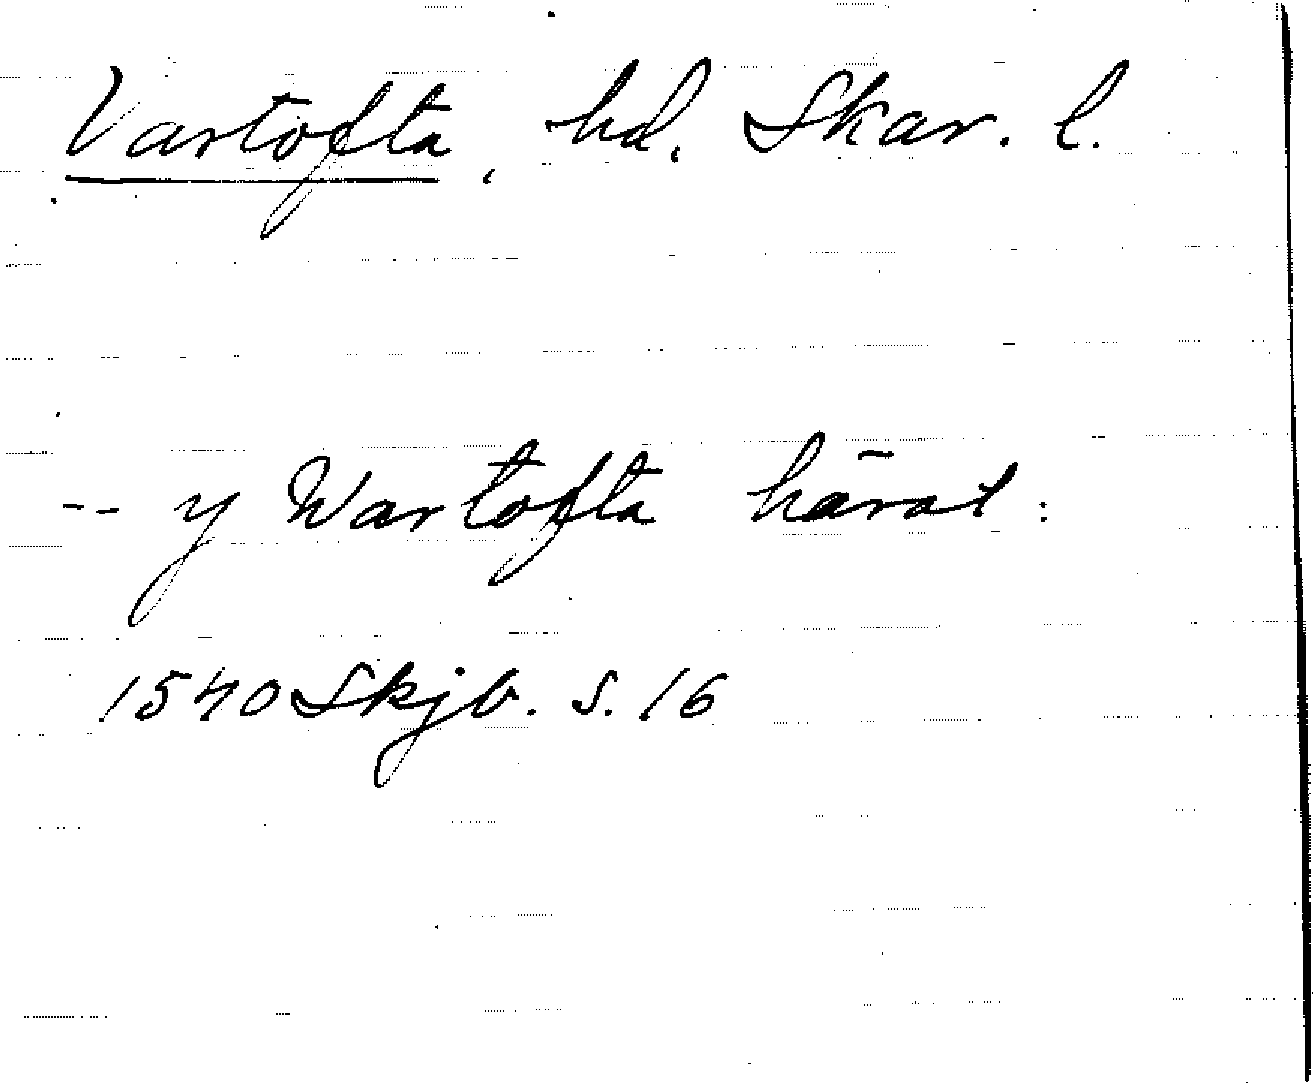 Vartofta, hd. Skar. l.
-- y Wartofta härat:
1540 Skjb. s. 16